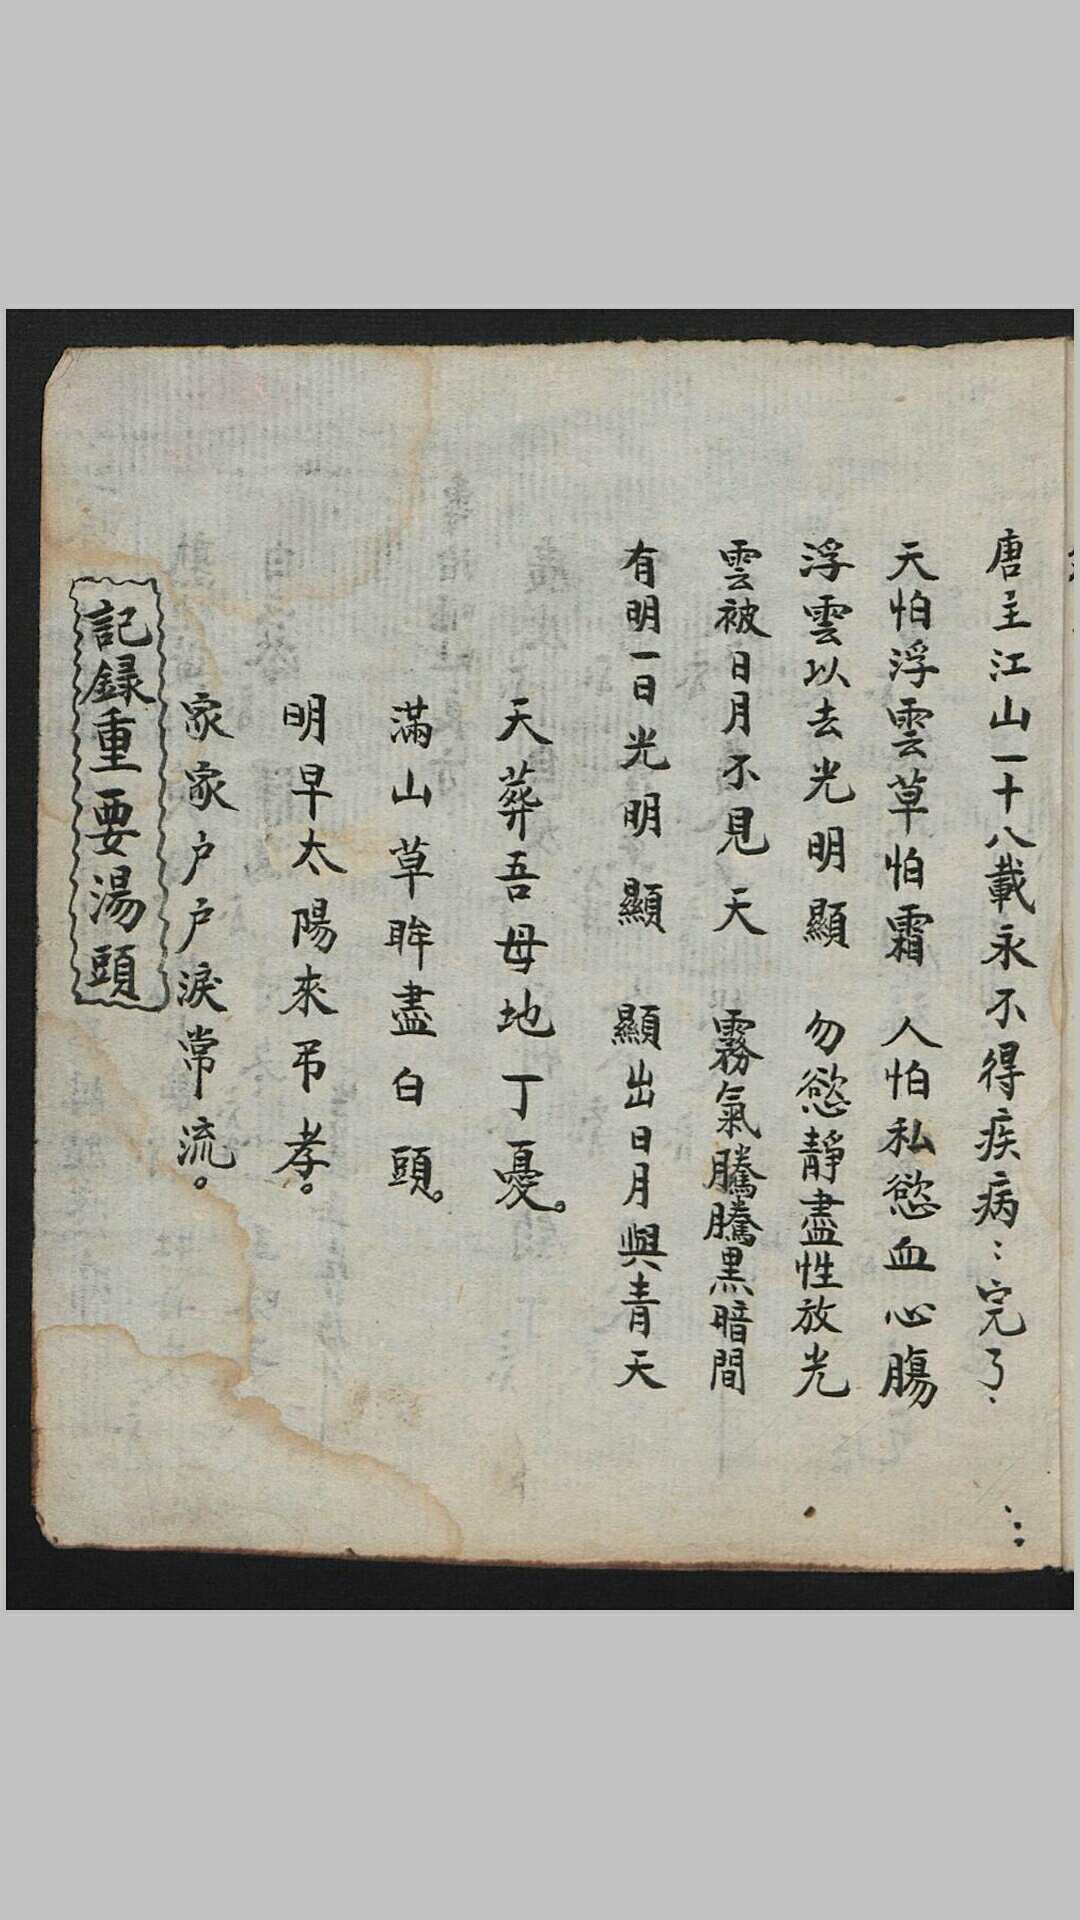 唐主江山一十八載永不得疾病：完了：
天怕浮雲草怕霜　人怕私慾血心腸
浮雲以去光明顯　勿慾靜盡性放光
雲被日月不見天　霧氣騰騰黑暗間
有明一日光明顯　顯出日月與青天
天葬吾母地丁憂。
滿山草眸盡白頭。
明早太陽來吊孝。
家家户户淚常流。
記録重要湯頭